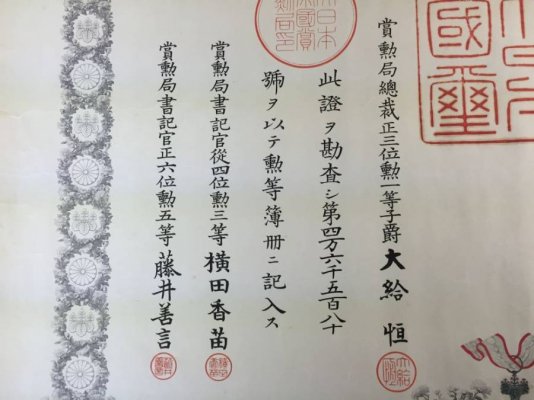 國璽
賞勲局總裁正三位勲一等子爵大給恒
此證ヲ勘査シ第四万六千五百八十
號ヲ以テ勲等簿册ニ記入ス
賞勲局書記官從四位勲三等横田香苗
賞勲局書記官正六位勲五等藤井善言